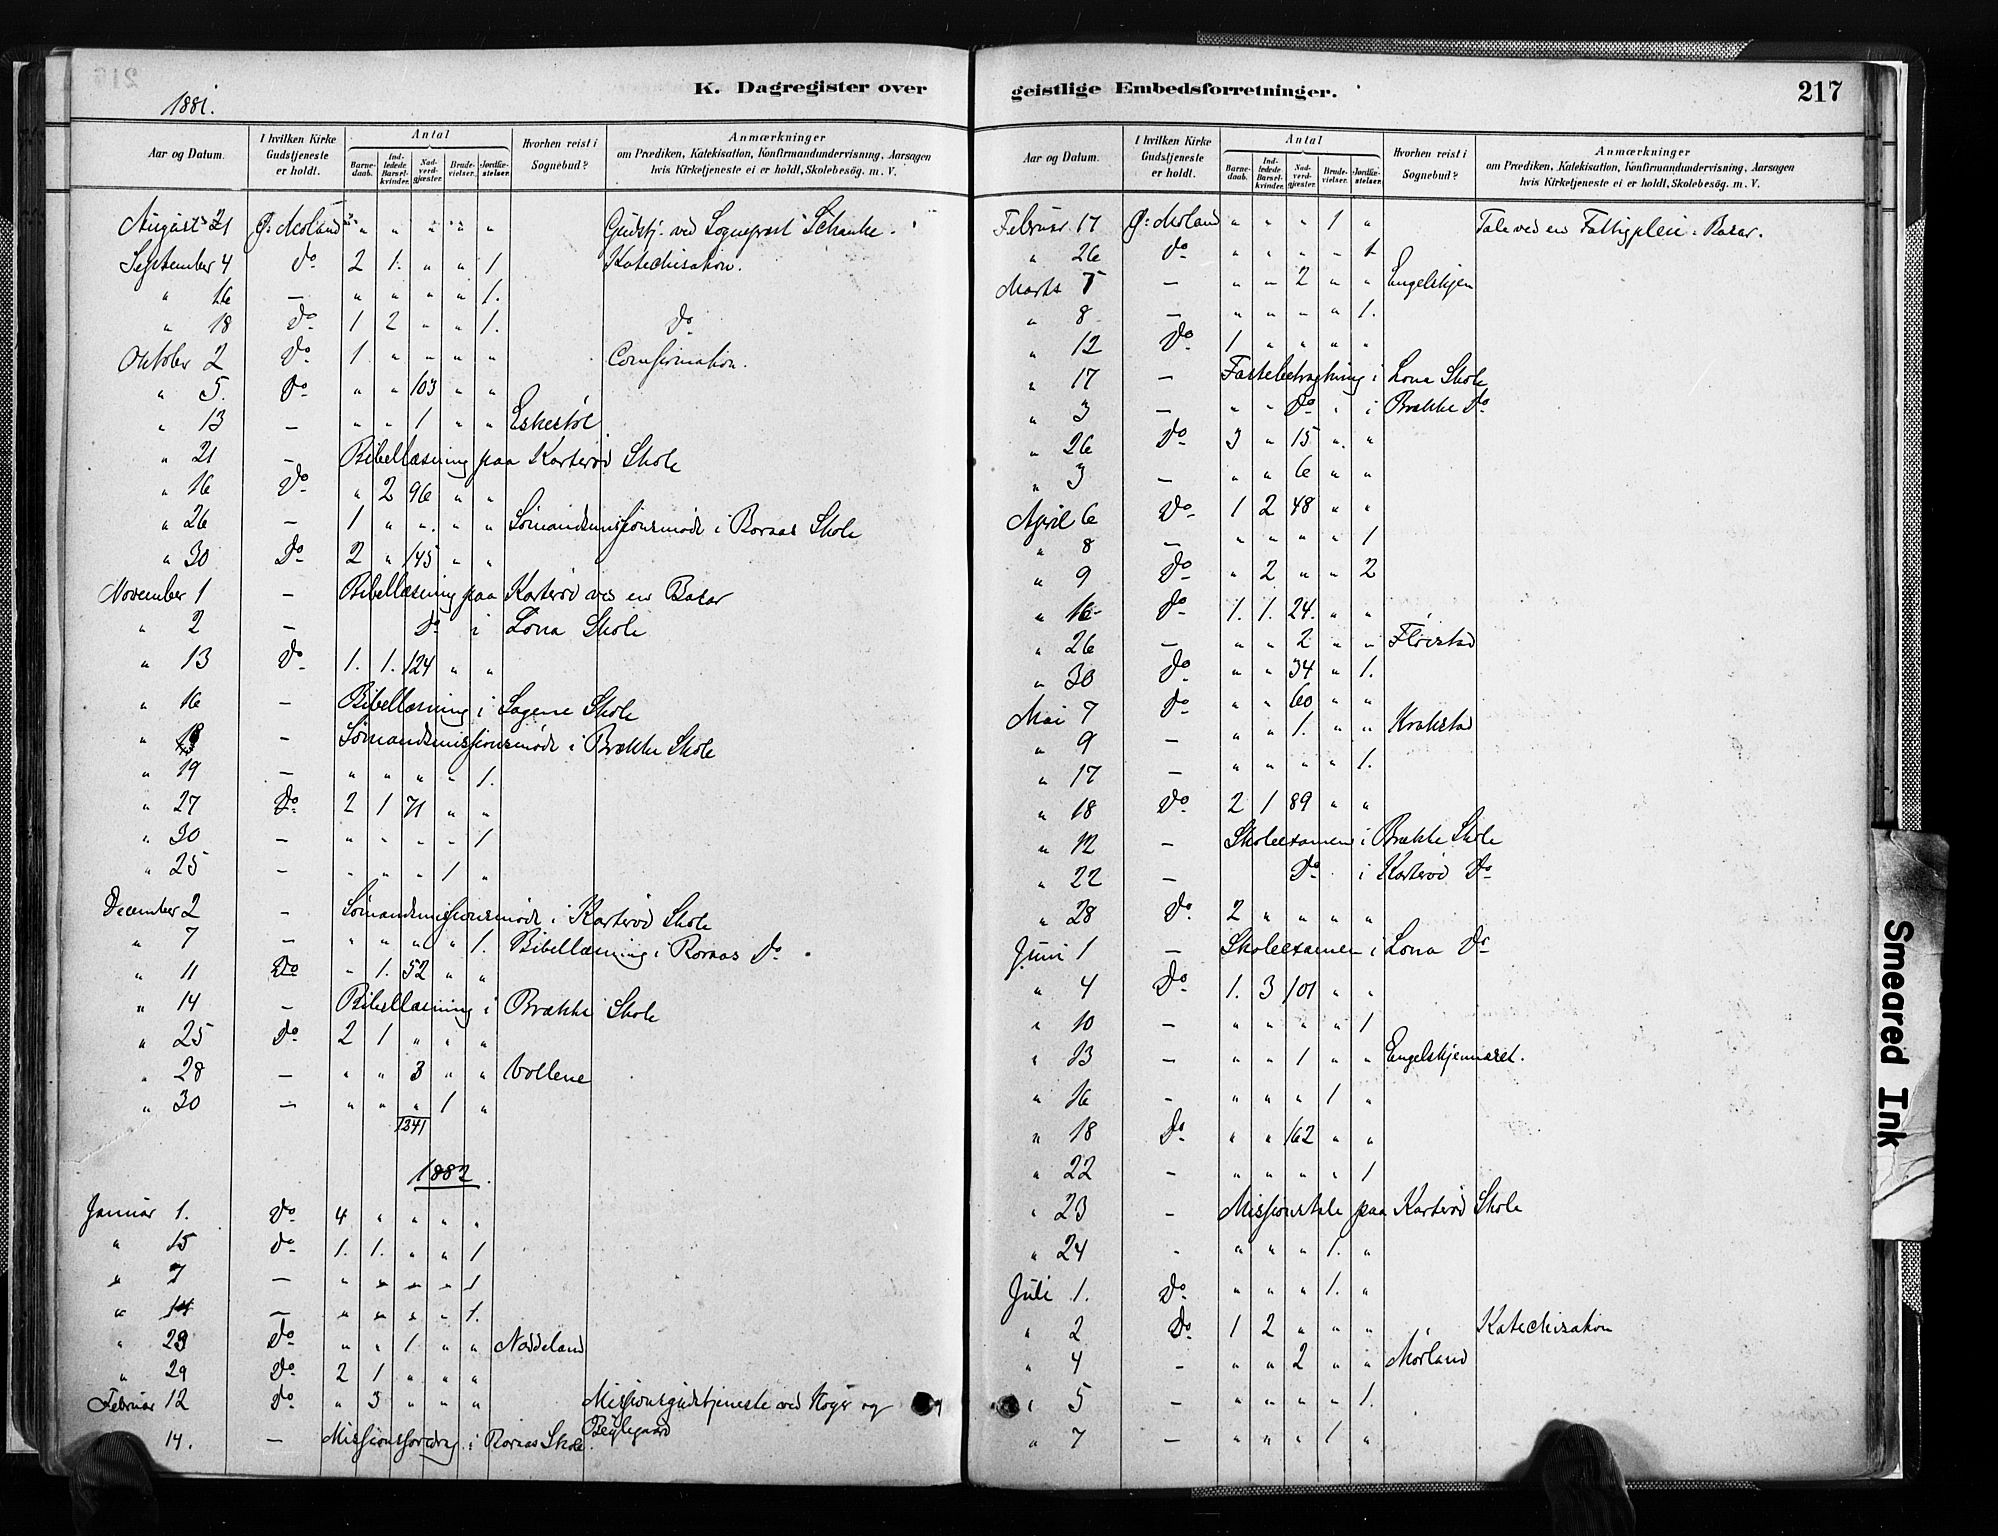 K. Dagregister over
1881.
Aar og Datum.
I hvilken Kirke Gudstjeneste er holdt.
Antal
Barnedaab.
Indledede Barselkvinder.
Nadverdgjæster.
Brudevielser.
Jordfæstelser.
Hvorhen reist i Sognebud?
Anmærkninger
om Prædiken, Katekisation, Konfirmandundervisning, Aarsagen
hvis Kirketjeneste ei er holdt, Skolebesøg. m. V.
August 21 Ø: Moland " " " " " Gudstj. ved Sogneprest Schanke.
September 4 do 2 1. " " 1 Katechisation.
" 16 — " " " " 1.
" 18 do 1 2 " " 1. do
Oktober 2 do 1 " " " " Confirmation.
" 5. do " " 103 " "
" 13 — " " 1 " " Eskestøl
" 21 — Bibellæsning paa Karterød Skole
" 16 do " 2 96 " "
" 26 — 1 " " " " Sømandsmissionsmøde i Bornas Skole
" 30 do 2 " 145 " "
November 1 — Bibellæsning paa Karterød ves en Basar
" 2 — do i Lona Skole
" 13 do 1. 1. 124 " "
" 16 — Bibellæsning i Sagene Skole
" 18 — Sømandsmissionsmøde i Brække Skole
" 19 — " " " " 1.
" 27 do 2 1 71 " "
" 30 — " " " " 1
" 25 — " " " 1 "
December 2 — Sømandsmissionsmøde i Karterød Skole
" 7 — " " " " 1. Bibellæsning i Rornas do
" 11 do " 1. 52 " "
" 14 — Bibellæsning i Brække Skole
" 25 do 2 1 " " "
" 28 — " " 3 " " Vollene
" 30 — " " " 1 "
1341
1882.
Januar 1. do 4 " " " "
" 15 do 1. 1. " " 1
" 7 — " " " " 1
" 14 — " " " " 1.
" 23 do " " 1 " " Noddeland
" 29 do 2 1 " " "
Februar 12 do " 3 " " " Missionsgudstjeneste ved Høyer og
14. — Missionsforedrag i Rornas Skole.
geistlige Embedsforretninger.
217
Aar og Datum.
I hvilken Kirke Gudstjeneste er holdt.
Antal
Barnedaab.
Indledede Barselkvinder.
Nadverdgjæster.
Brudevielser.
Jordfæstelser.
Hvorhen reist i Sognebud?
Anmærkninger
om Prædiken, Katekisation, Konfirmandundervisning, Aarsagen
hvis Kirketjeneste ei er holdt, Skolebesøg. m. V.
Februar 17 Ø: Moland " " " 1 " Tale ved en Fattigpleie-Basar.
" 26 do " " " " 1
Marts 5 — " " 2 " " Engelskjen
" 8 — " " " " 1.
" 12 do 1 " " " "
" 17 — Fastebetragtning i Lona Skole
" 3 — " " do " i Brække do
" 26 do 3 " 15 " "
" 3 — " " 6 " "
April 6 do 1 2 48 " "
" 8 — " " " " 1
" 9 do " 2 " " 2
" 16 do 1. 1. 24. " "
" 26 — " " 2 " " Fløistad
" 30 do " " 34 " 1.
Mai 7 do " " 60 " "
" 9 — " " 1. " " Krakstad
" 17 — " " " " 1.
" 18 do 2 1 89 " "
" 12 — Skoleexamen i Brække Skole
" 22 — do i Karterød do
" 28 do 2 " " " "
Juni 1 — Skoleexamen i Lona do
" 4 do 1. 3 101 " "
" 10 — " " " " 1
" 13 — " " 1 " " Engelskjennæret.
" 16 - " " " 1 "
" 18 do " " 162 " "
" 22 - " " " " 1
" 23 - Missionstale paa Karterød Skole
" 24 - " " " 1. "
Juli 1. do " " " 1. "
" 2 do 1 2 " " " Katechisation
" 4 - " " 2 " " Mørland
" 5 - " " " " 1.
" 7 - " " " 1 "
Smeared Ink